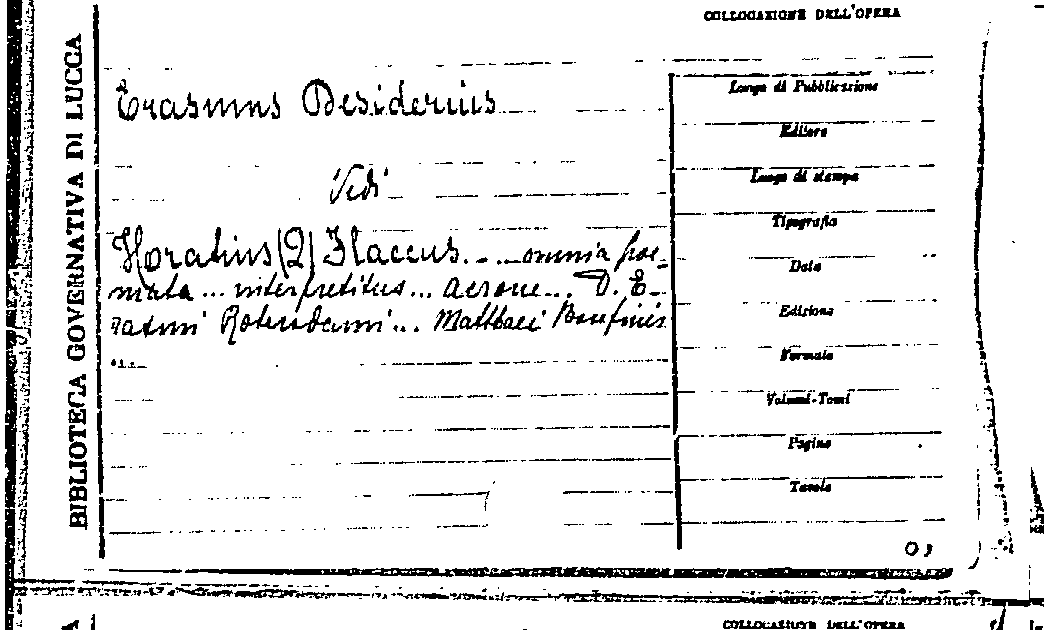 COLLOCAZIONE DELL'OPERA
BIBLIOTECA GOVERNATIVA DI LUCCA
Erasmus Desiderius
Vedi
Horatius (Q) Flaccus. _ ... omnia poe-
mata ... interpretibus ... Acrone ... D. E-
rasmi Roterodami ... Matthaei Bonfinis
...
Luogo di Pubblicazione
Editore
Luogo di stampa
Tipografia
Data
Edizione
Formato
Volumi-Tomi
Pagine
Tavole
COLLOCAZIONE DELL'OPERA